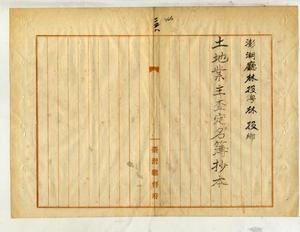 澎湖廳林投澳林投鄉
土地業主查定名簿抄本
臺灣總督府